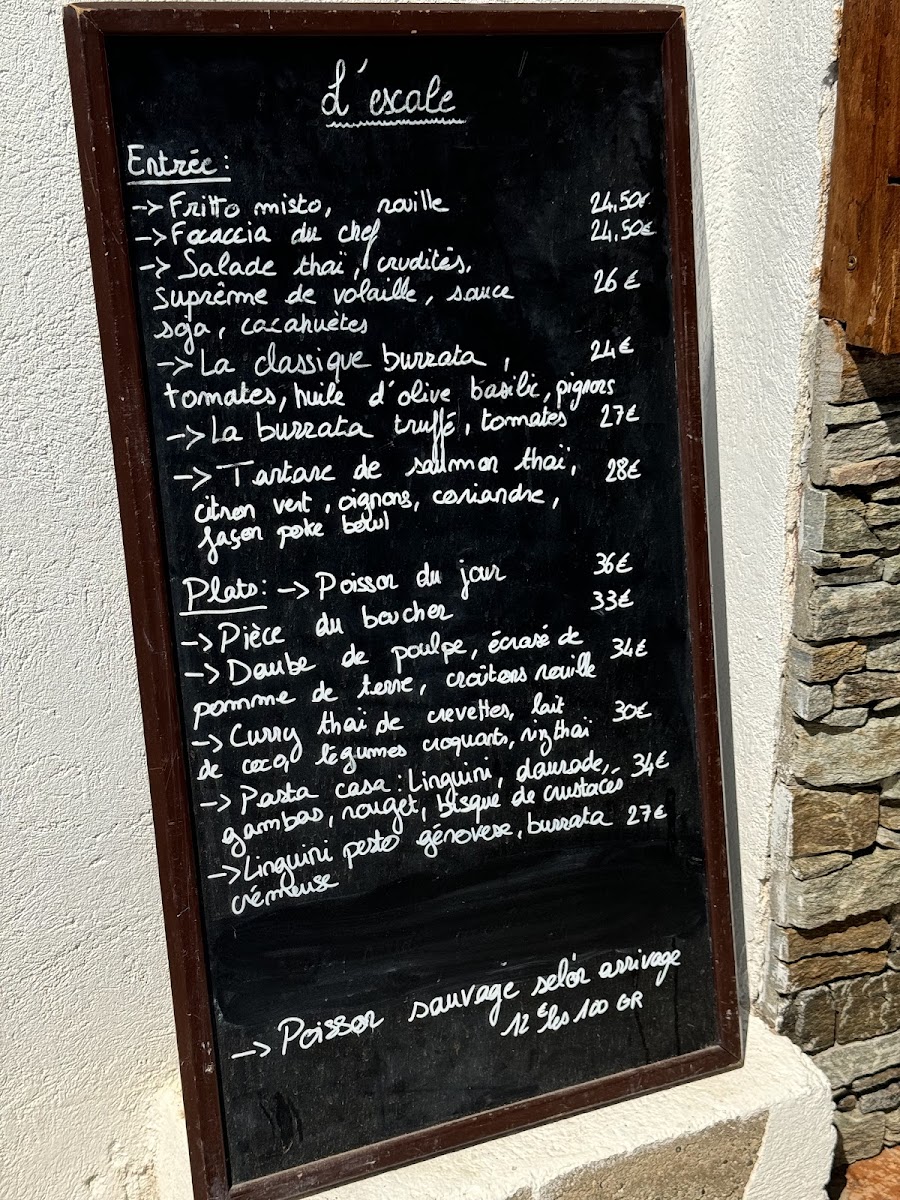 L'escale
Entrée:
-> Fritto misto, rouille 24,50€
-> Focaccia du chef 24,50€
-> Salade thaï, crudités, 
suprême de volaille, sauce 26€
soja, cacahuètes
-> La classique burrata, 24€
tomates, huile d'olive basilic, pignons
-> La burrata truffé, tomates 27€
-> Tartare de saumon thaï, 28€
citron vert, oignons, coriandre,
façon poke bowl
Plats: -> Poisson du jour 36€
-> Pièce du boucher 33€
-> Daube de poulpe, écrasé de 34€
pomme de terre, croûtons rouille
-> Curry thaï de crevettes, lait 30€
de coco, légumes croquants, riz thaï
-> Pasta casa: Linguini, daurade, 34€
gambas, rouget, bisque de crustacés
-> Linguini pesto génovese, burrata 27€
crémeuse
-> Poisson sauvage selon arrivage
12€ les 100 GR